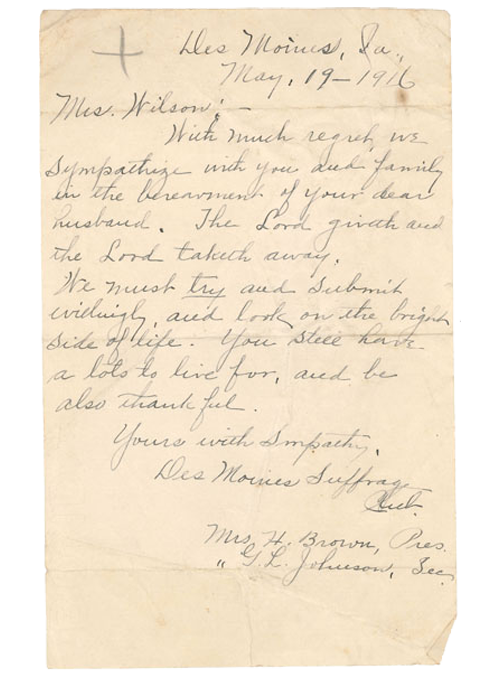 Des Moines, Ia.,
May, 19-1916
Mrs. Wilson:-
With much regret, we
sympathize with you and family
in the bereavment of your dear
husband. The Lord giveth and
the Lord taketh away.
We must try and submit
willingly, and look on the bright
side of life. You still have
a lots to live for, and be
also thankful.
Yours with Smpathy,
Des Moines Suffrag
Club.
Mrs. H. Brown, Pres.
" G. L. Johnson, Sec.